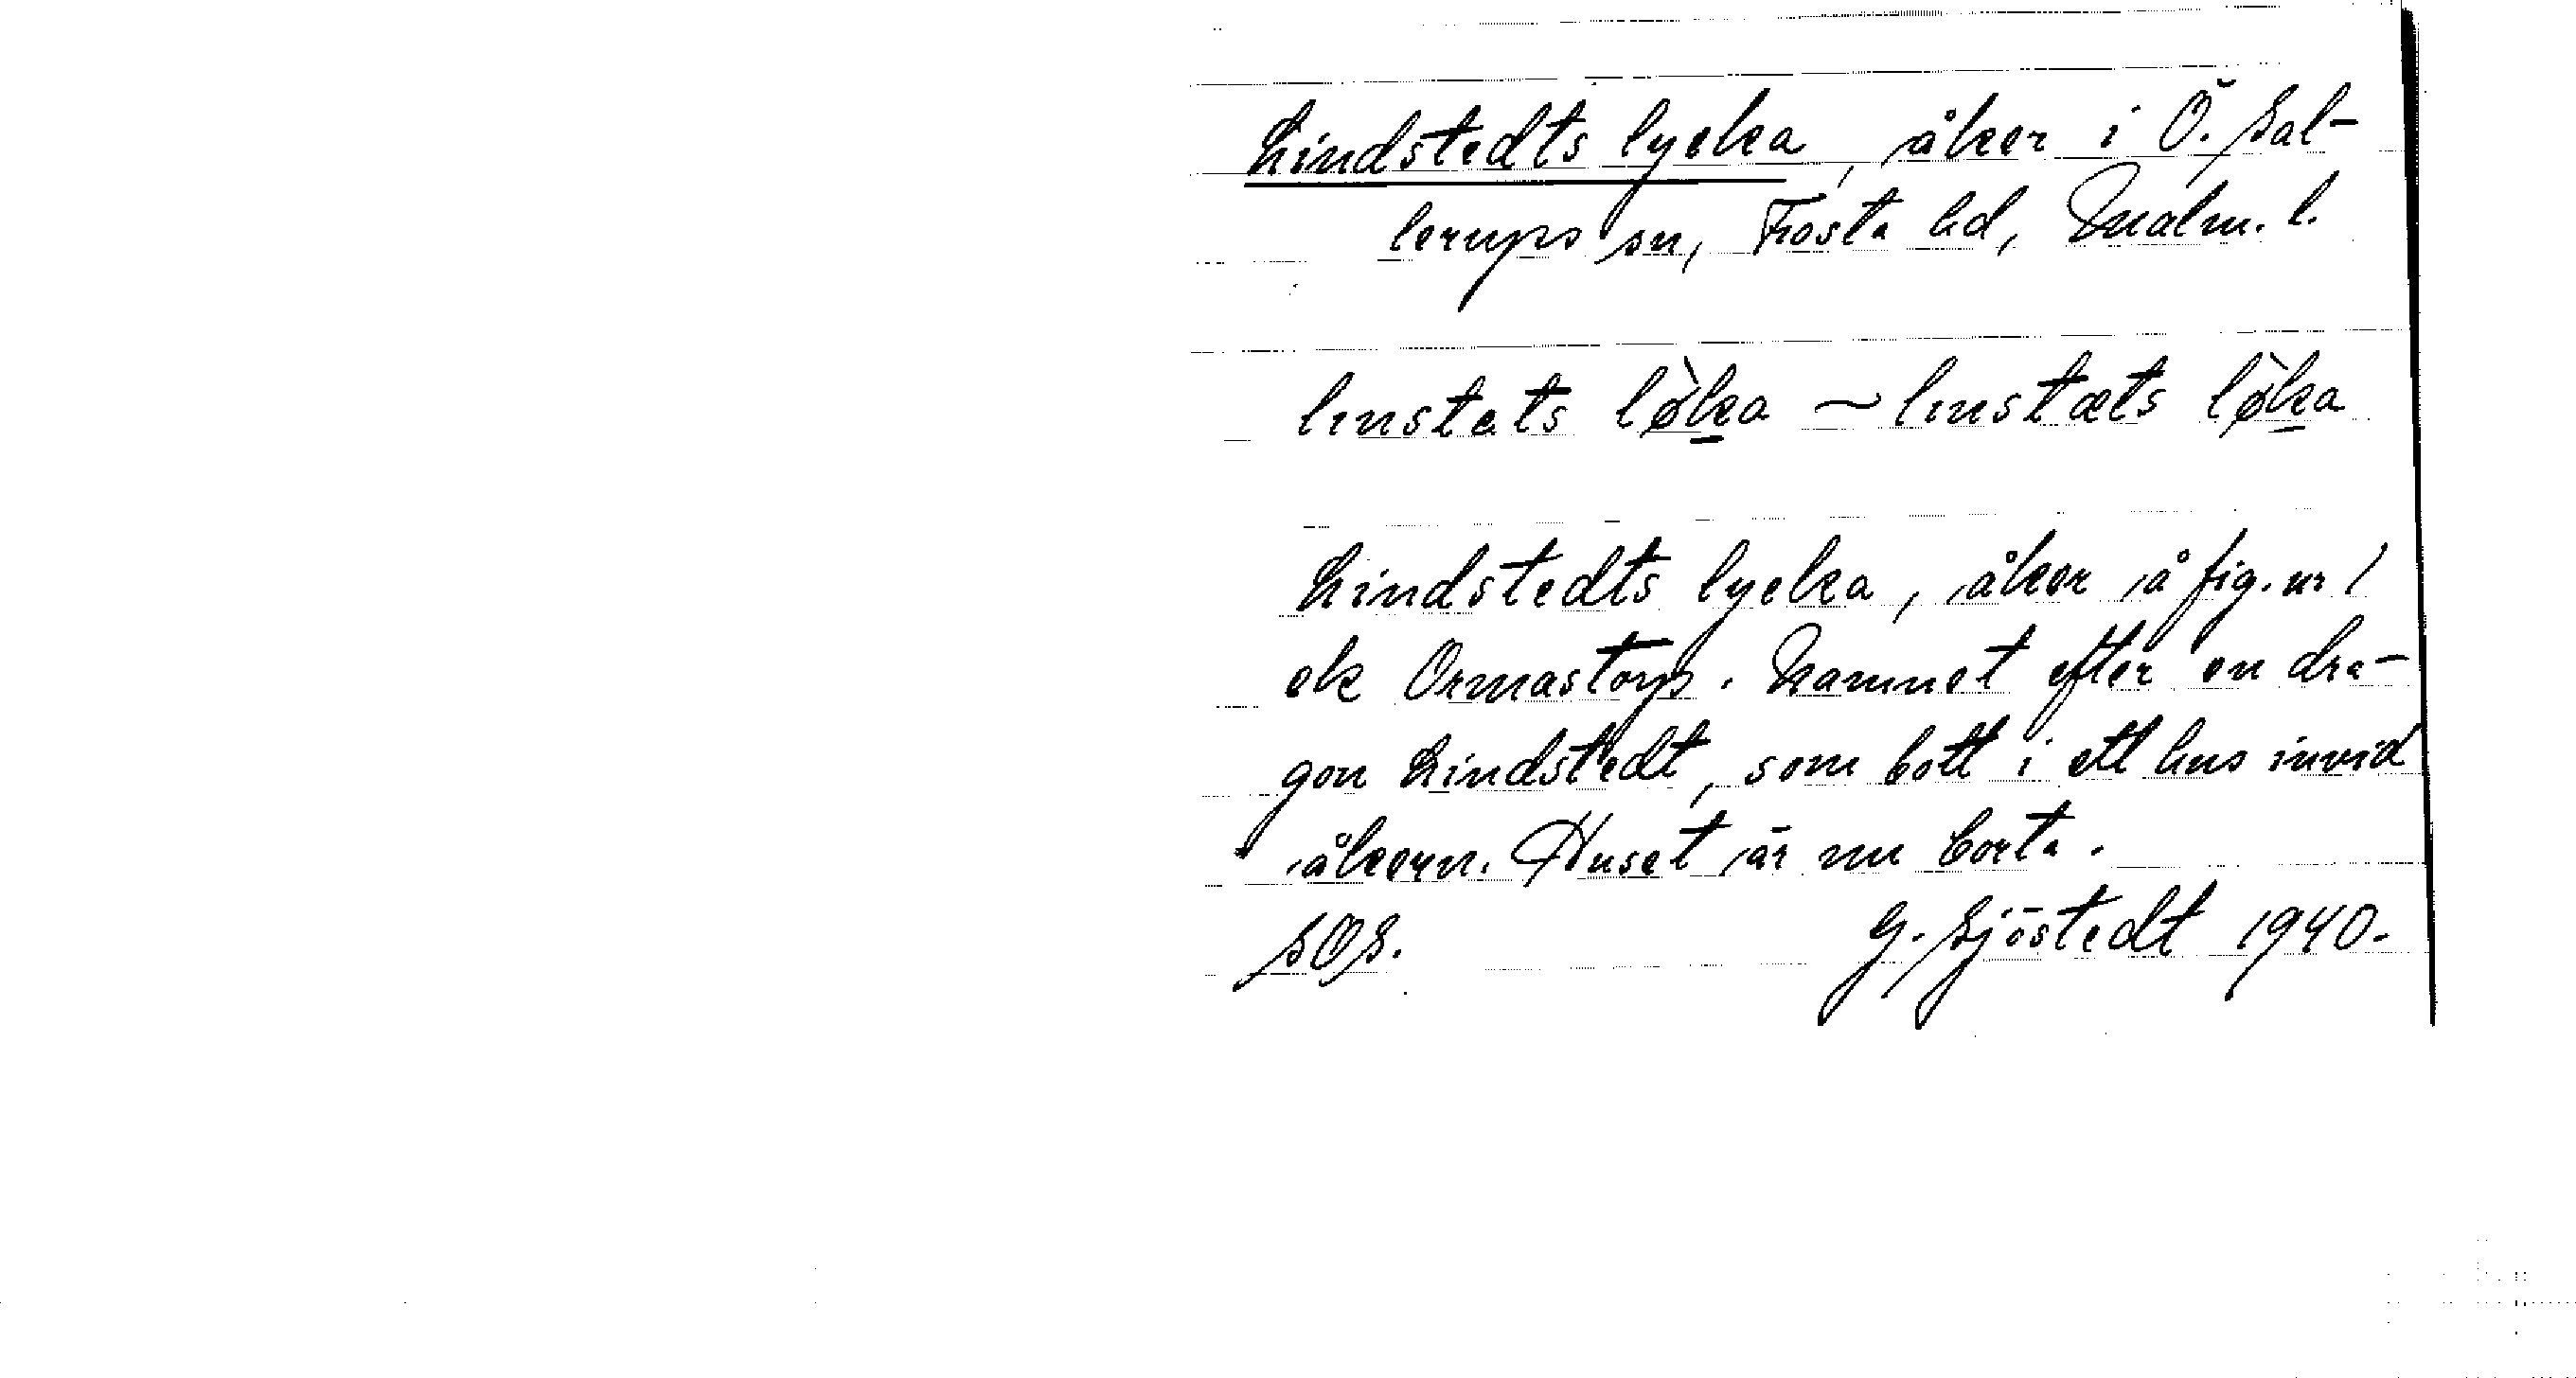 Lindstedts lycka, åker i Ö. Sal-
lerups sn, Frosta hd, Malm. l.
lınstets lø̀ka ~ lınstæts lø̀ka
Lindstedts lycka, åker å fig. nr 1
ek Ormastorp. Namnet efter en dra-
gon Lindstedt, som bott i ett hus invid
åkern. Huset är nu borta.
SOS. G. Sjöstedt 1940.